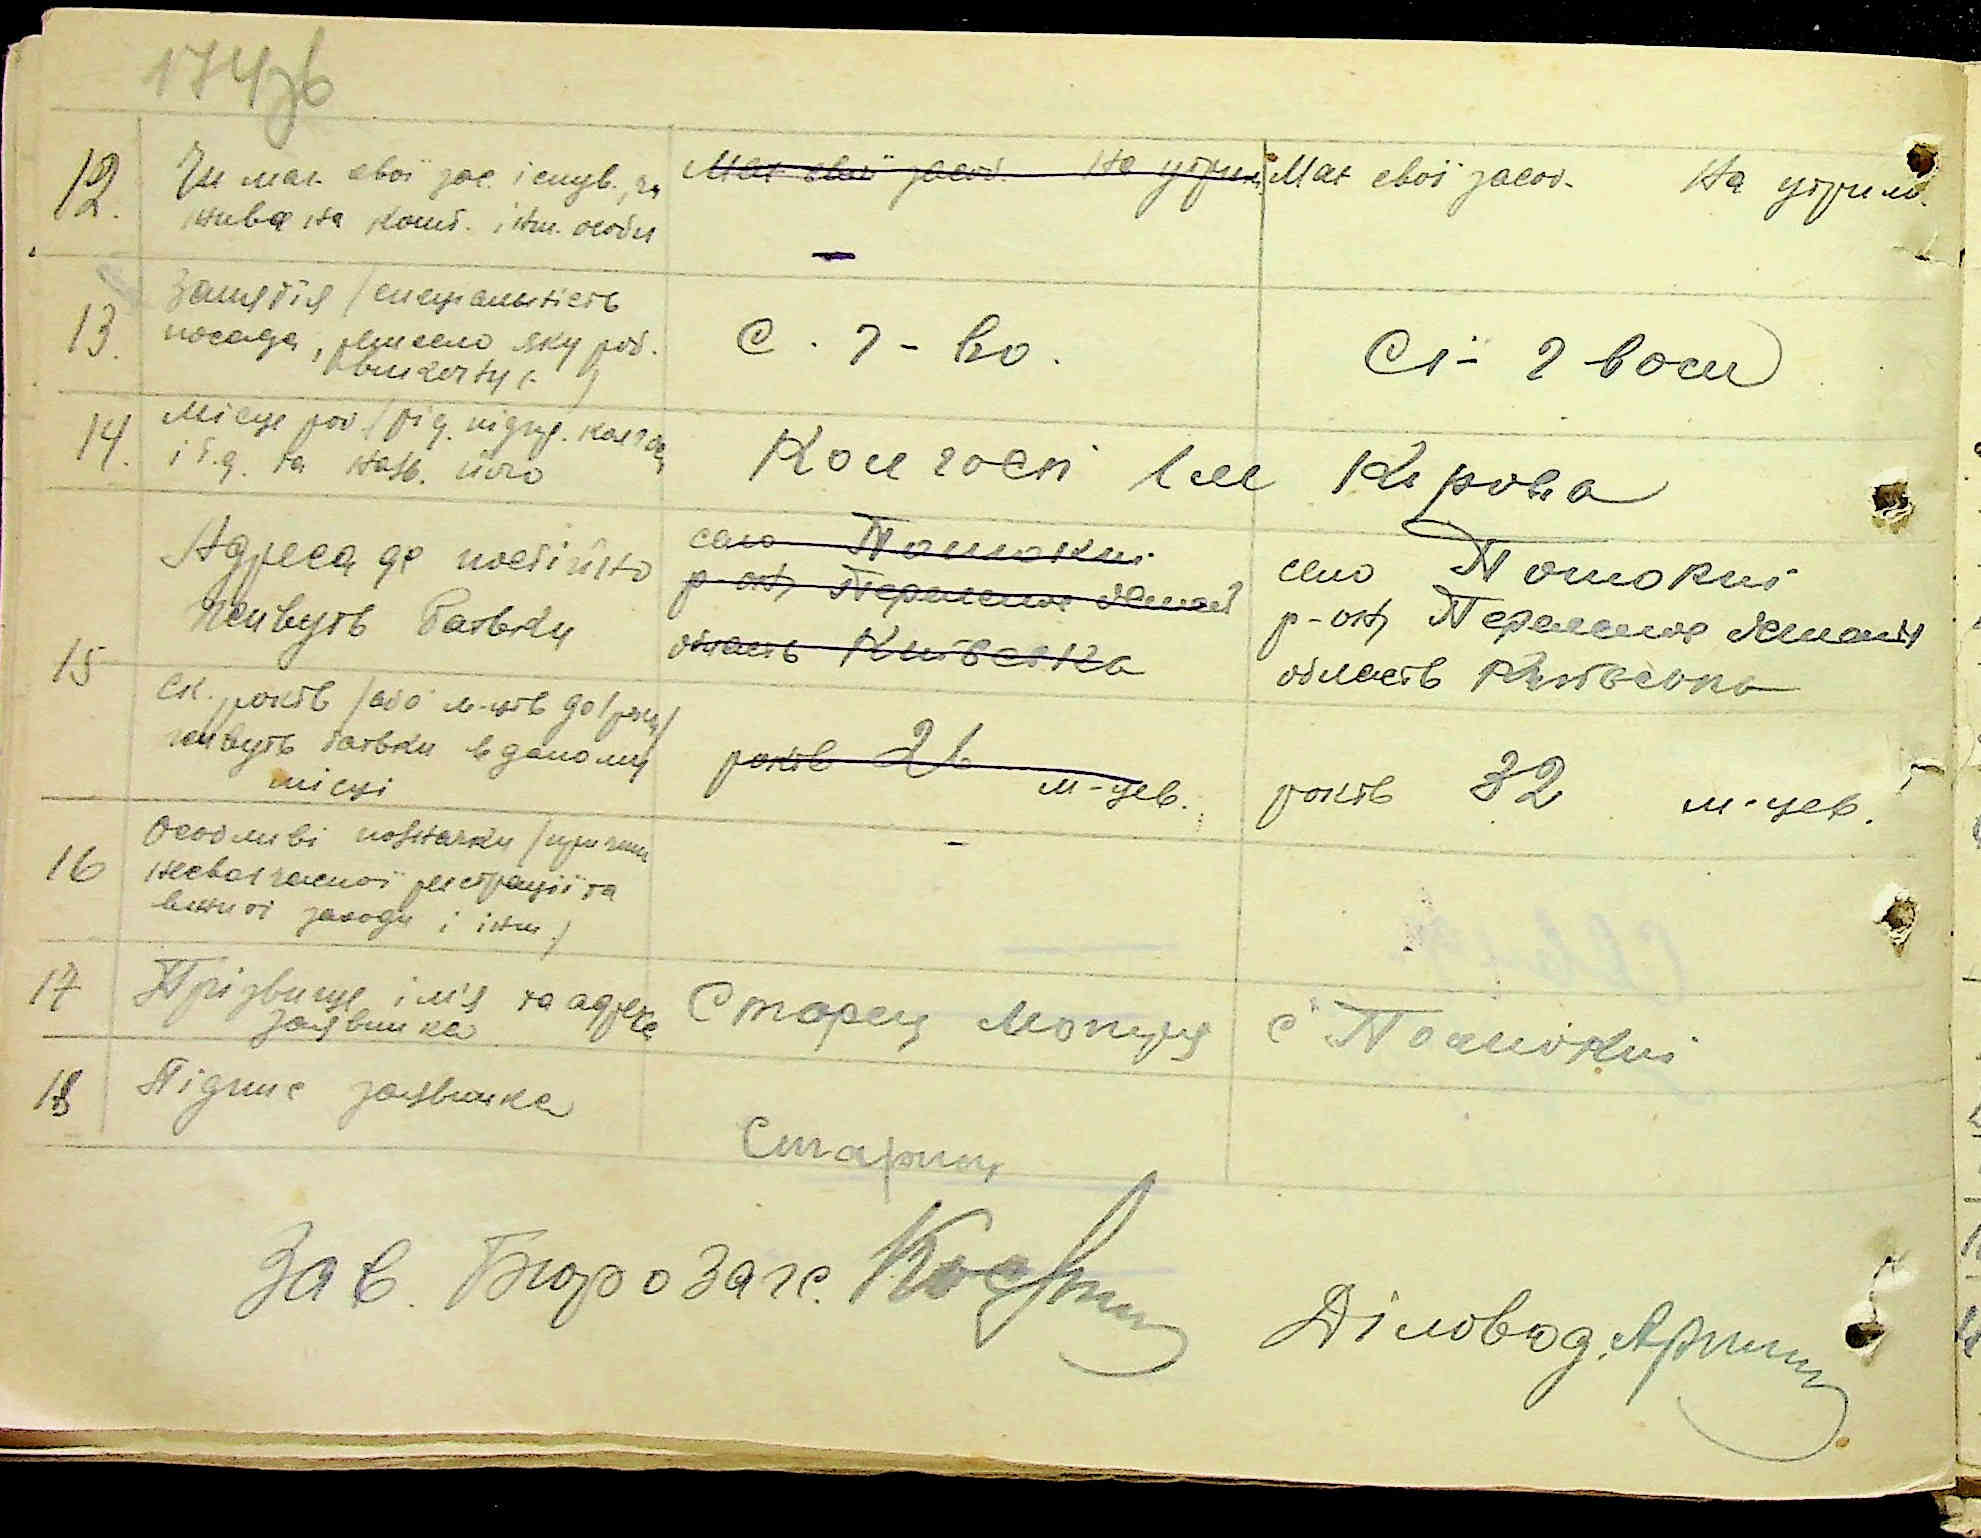 174зв
12. Чи має свої зас. існув., чи
живе на кошт. інш. особи
Має свої засоб. На утрим.
Має свої засоб. На утрим.
—
13. Заняття /спеціальність
посада, ремесло яку роб.
виконує /
С. г-во.
Сі- г воси
14. Місце роб. /від. підпр. колгосп
і т.д. та назв. його
Колгосп ім Кірова
15 Адреса де постійно
живуть батьки
село Потокиі
р-он,
область Київська
село Потокиі
р-он,
область Київська
Ск. років /або м-ців до 1 року/
живуть батьки в даному
місці
років 26 м-цев.
років 32 м-цев.
16 Особливі познач­ки /причин
несвоєчасної реєстрації та
вжиті заходи і інш./
-
17 Прізвище ім'я та адреса
заявника
Старец Мотря
с. Потокиі
18 Підпис заявника
Старец
Зав. Бюро Загс.
Діловод.